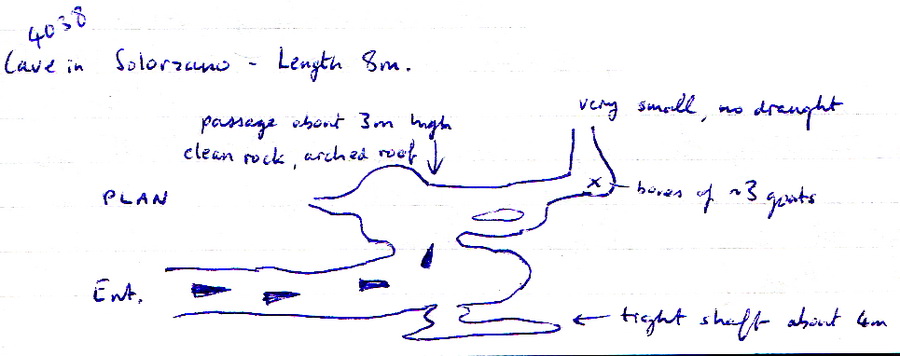 4038
Cave in Solorzano - Length 8m.
very small, no draught
passage about 3m high
clean rock, arched roof
PLAN
x
bones of ~3 goats
Ent.
tight shaft about 4m